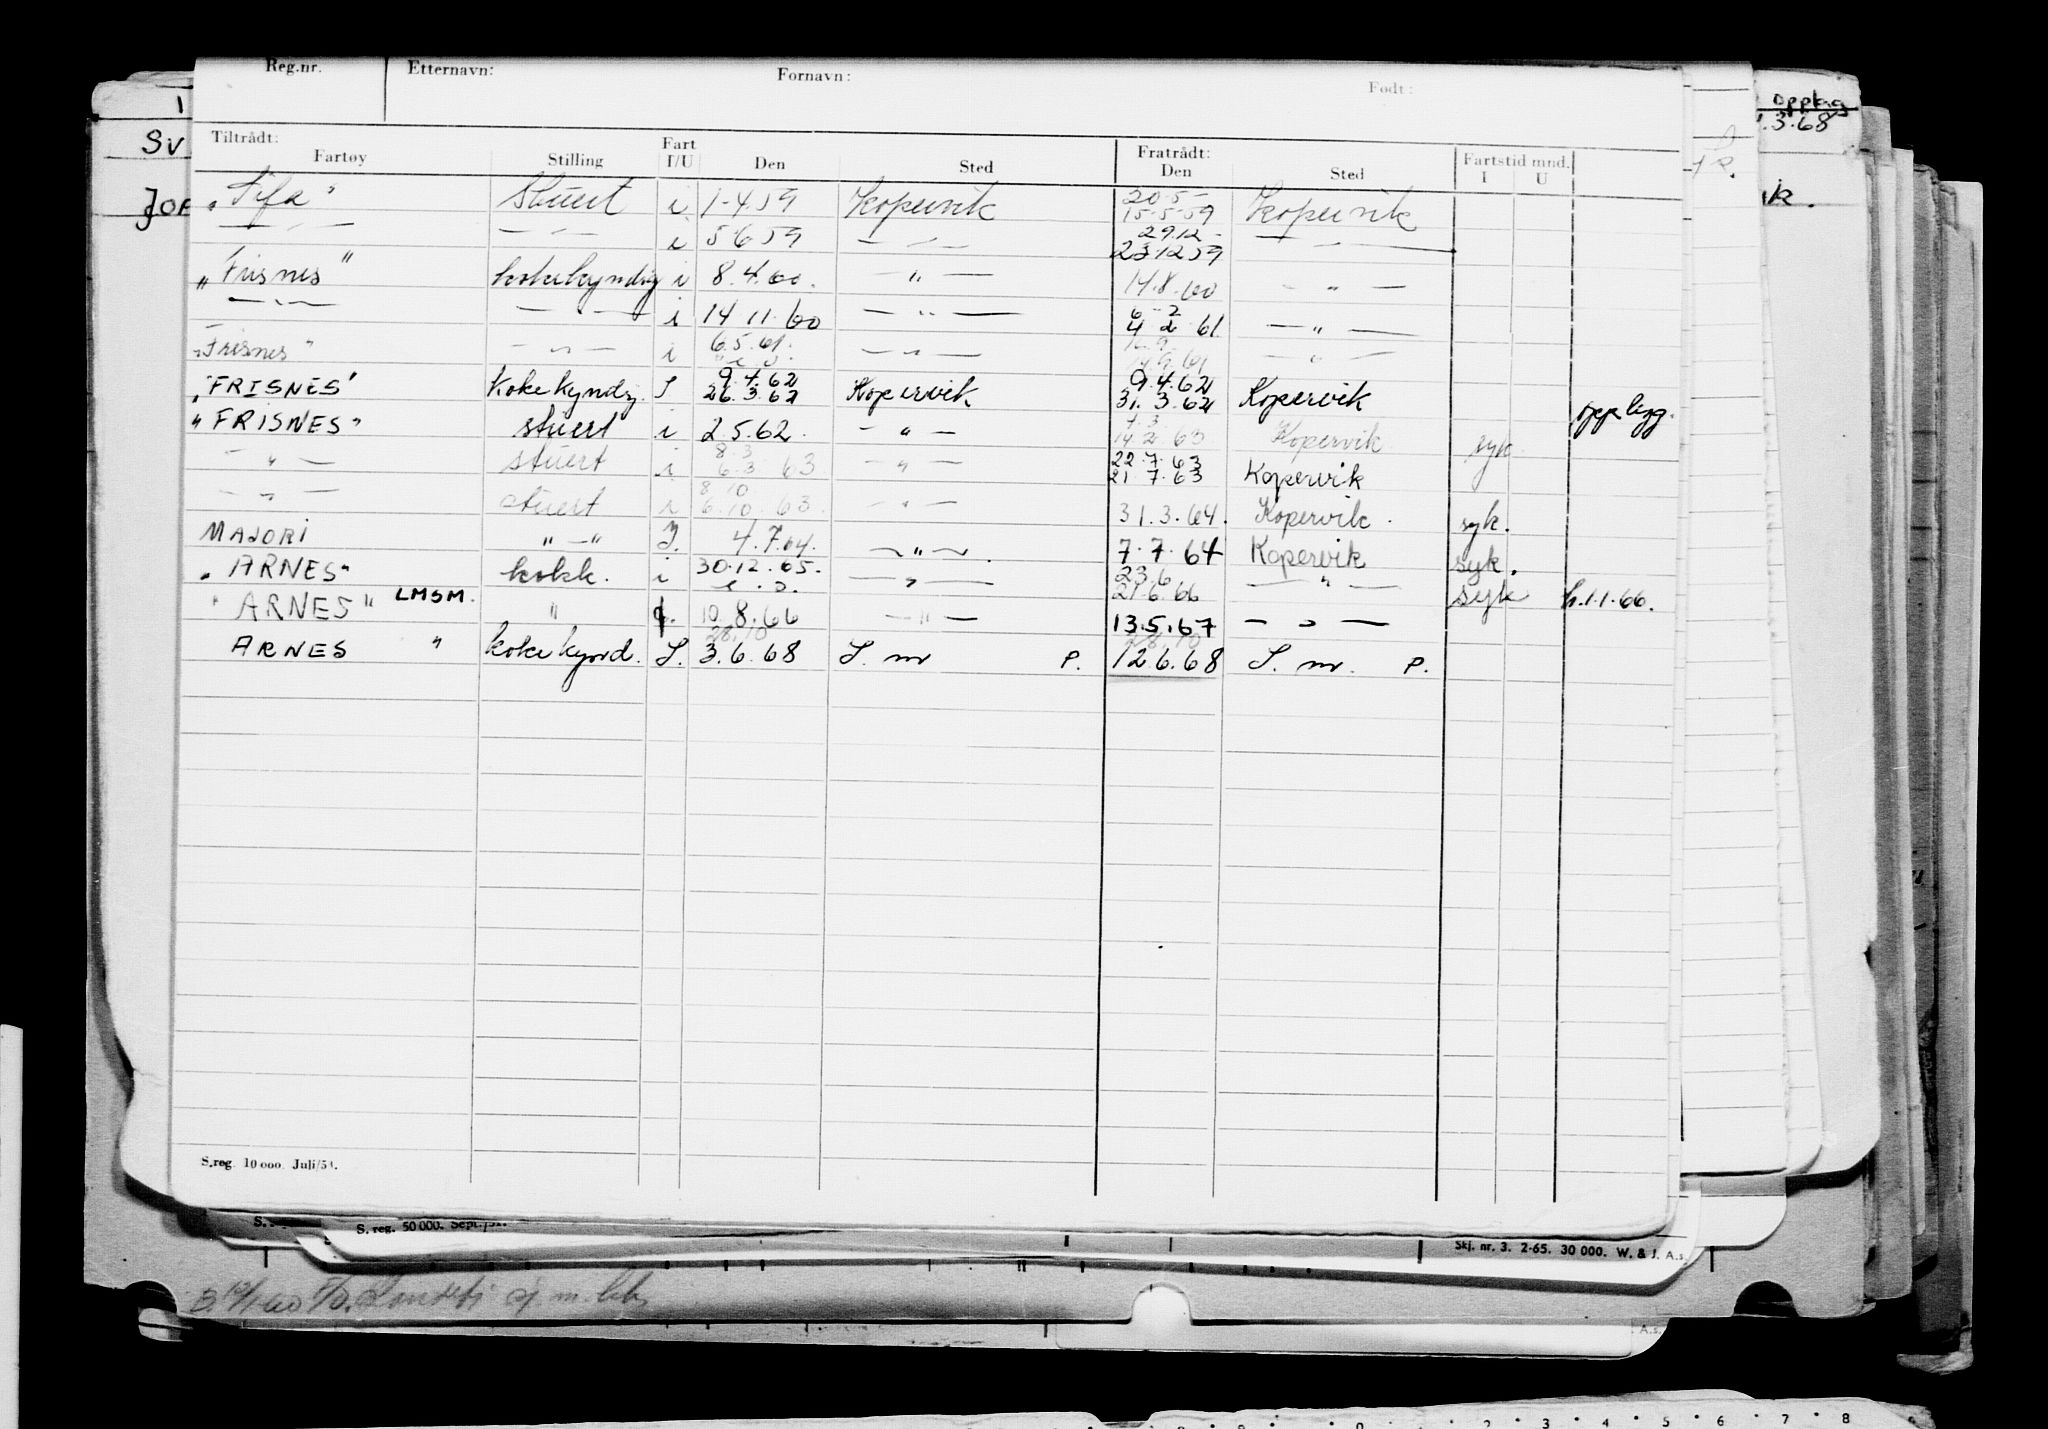 Reg.nr. Etternavn: Fornavn: Født:
opplag
1.3.68
Tiltrådt: Fratrådt:
Fartøy Stilling Fart I/U Den Sted Den Sted Fartstid mnd. I U
Sv
JOR
„Fifa" Stuert i 1-4.59 Kopervik 20-5- 15-5-59 Kopervik
— " — — " — i 5-6 59 — " — 29.12- 23.12.59 — " —
„Frisnes" kokekyndig i 8.4.60. — " — 14.8.60 — " —
— " — — " — i 14 11.60 — " — 6-2 4 2 61. — " —
„Frisnes" — " — i 6.5.61. — " — — " —
„FRISNES" Kokekyndig. I 9.4.62 26.3.62 Kopervik 9.4.62 31.3.62 Kopervik opplegg.
"FRISNES" stuert i 2.5.62. — " — 7.3. 14.2.63 Kopervik syk
— " — stuert i 8.3 6.3 63 — " — 22.7.63 21.7.63 Kopervik
— " — stuert i 8.10 6.10.63. — " — 31.3.64. Kopervik. syk.
MAJORI " — " I. 4.7.64. — " — 7.7.64 Kopervik syk.
„ARNES" kokk. i 30.12.65. — " — 23.6 21.6.66 — " — syk h.1.1.66.
"ARNES" LMSM. " 10.8.66 — " — 13.5.67 — " —
ARNES " kokekynd. I. 28.10 3.6.68 S. mr P. 28.10 12.6.68 S. mr. P.
S.reg. 10 000. Juli/51.
S. reg. 50 000. Sept./52.
Skj. nr. 3. 2-65. 30 000. W. & J. A.s.
A.s.
2 3 4 5 6 7 8